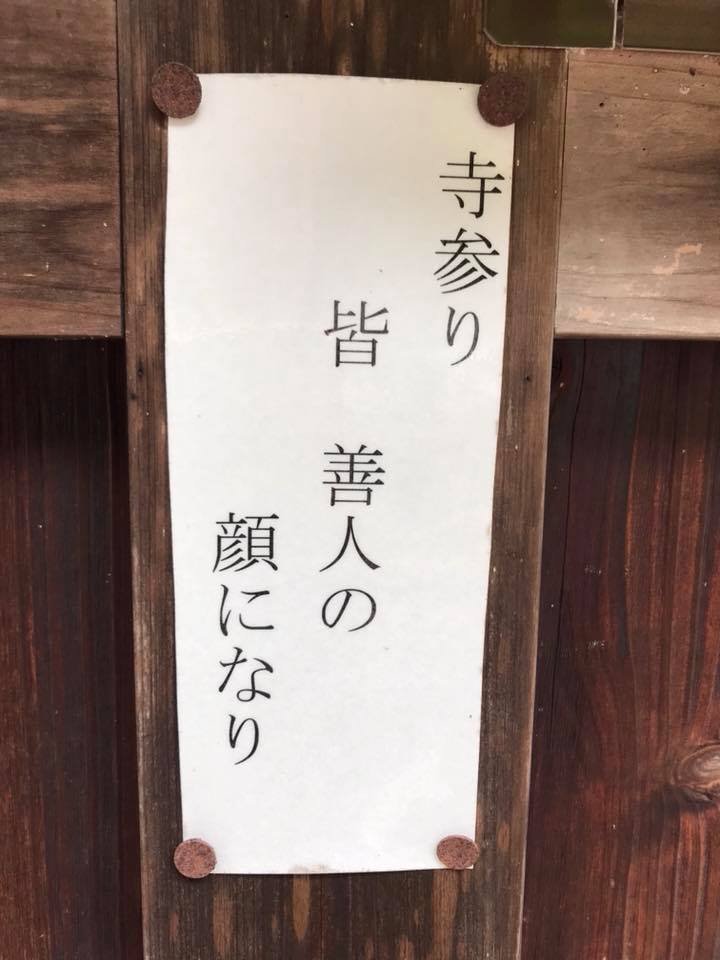 寺参り
皆 善人の
顔になり